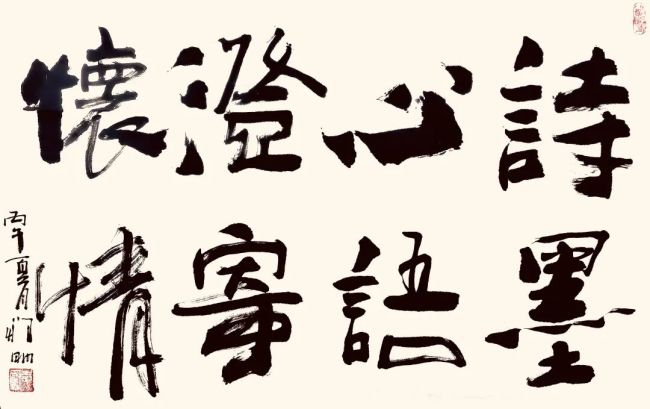 詩心澄懷
墨語寄情
丙午夏月